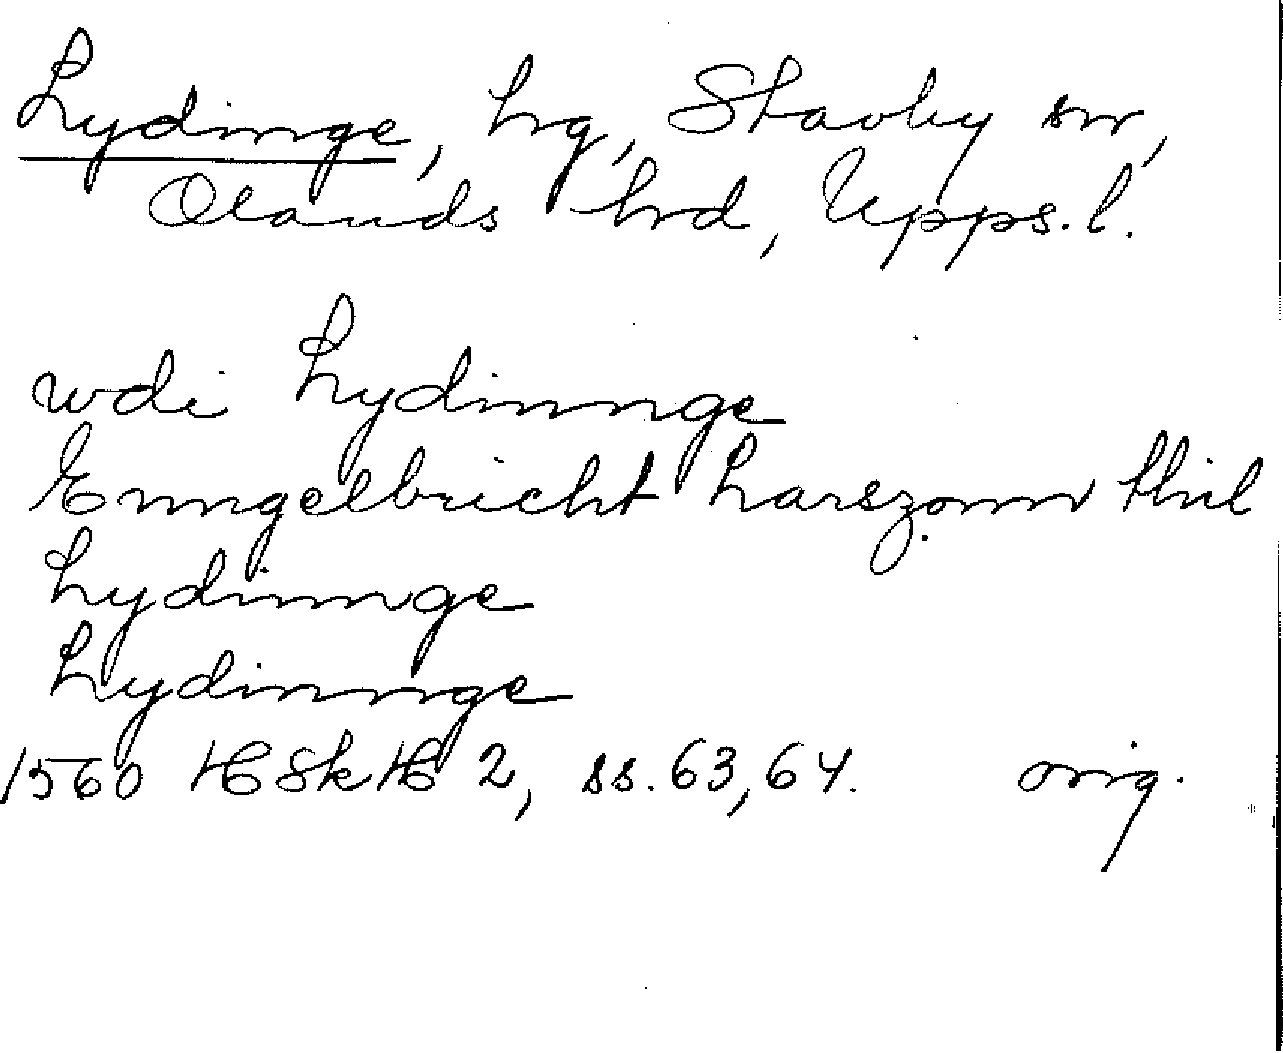 Lydinge, hg, Stavby sn,
Olands hrd, Upps. l.
wdi Lydinnge
Enngelbricht Larszonn thil
Lydinnge
Lydinnge
1560 HSkH 2, ss. 63, 64. orig.